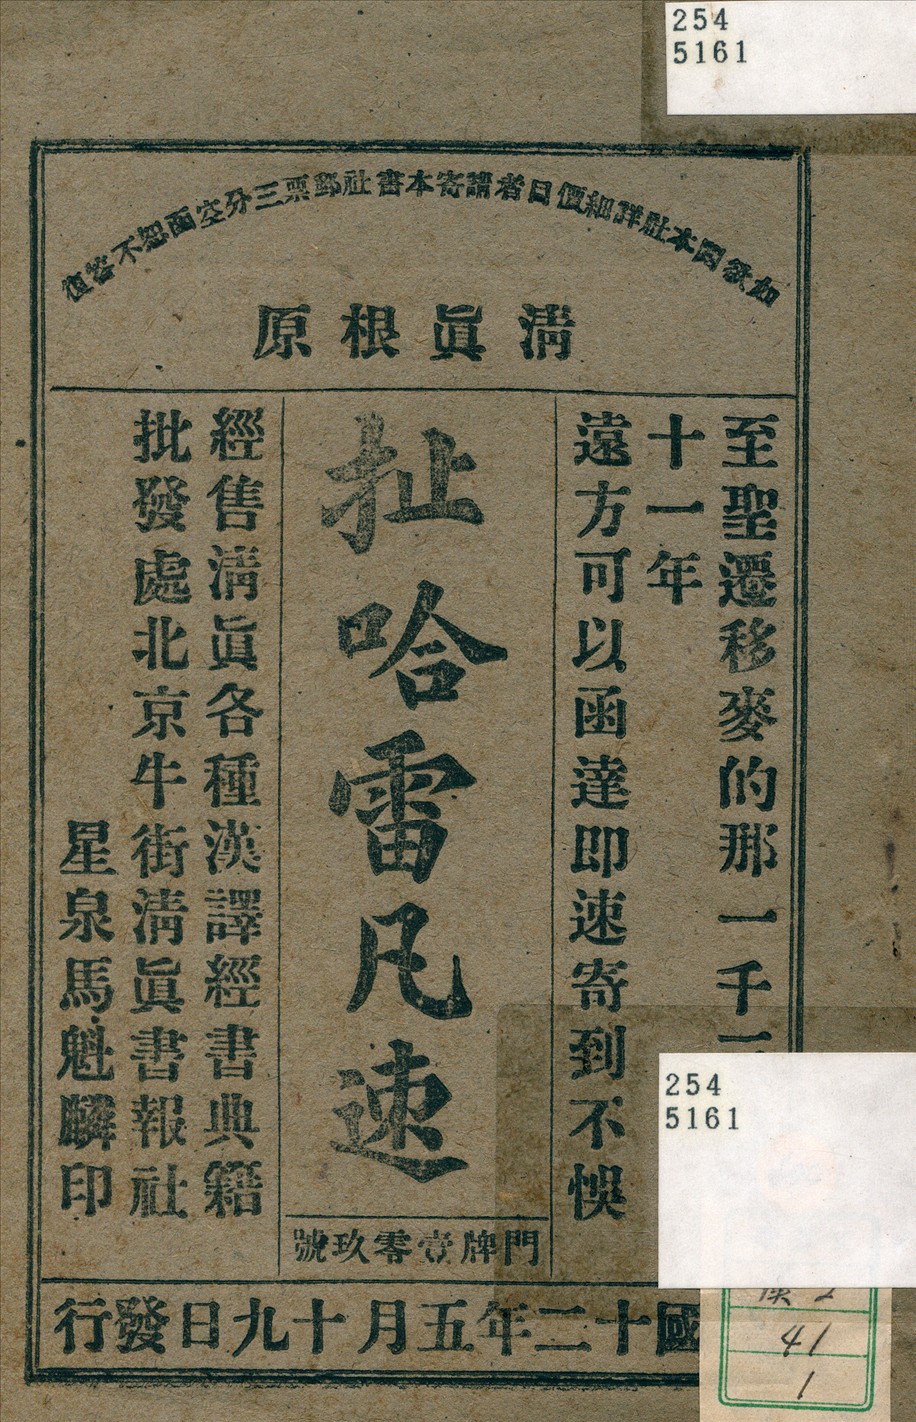 254
5161
如欲閱本社詳細價目者請寄本書社郵票三分空函恕不答復
清眞根原
至聖遷移麥的那一千三
十一年
遠方可以函達即速寄到不悞
扯哈雷凡速
門牌壹零玖號
經售清眞各種漢譯經書典籍
批發處北京牛街清眞書報社
星泉馬魁麟印
國十二年五月十九日發行
254
5161
41
1